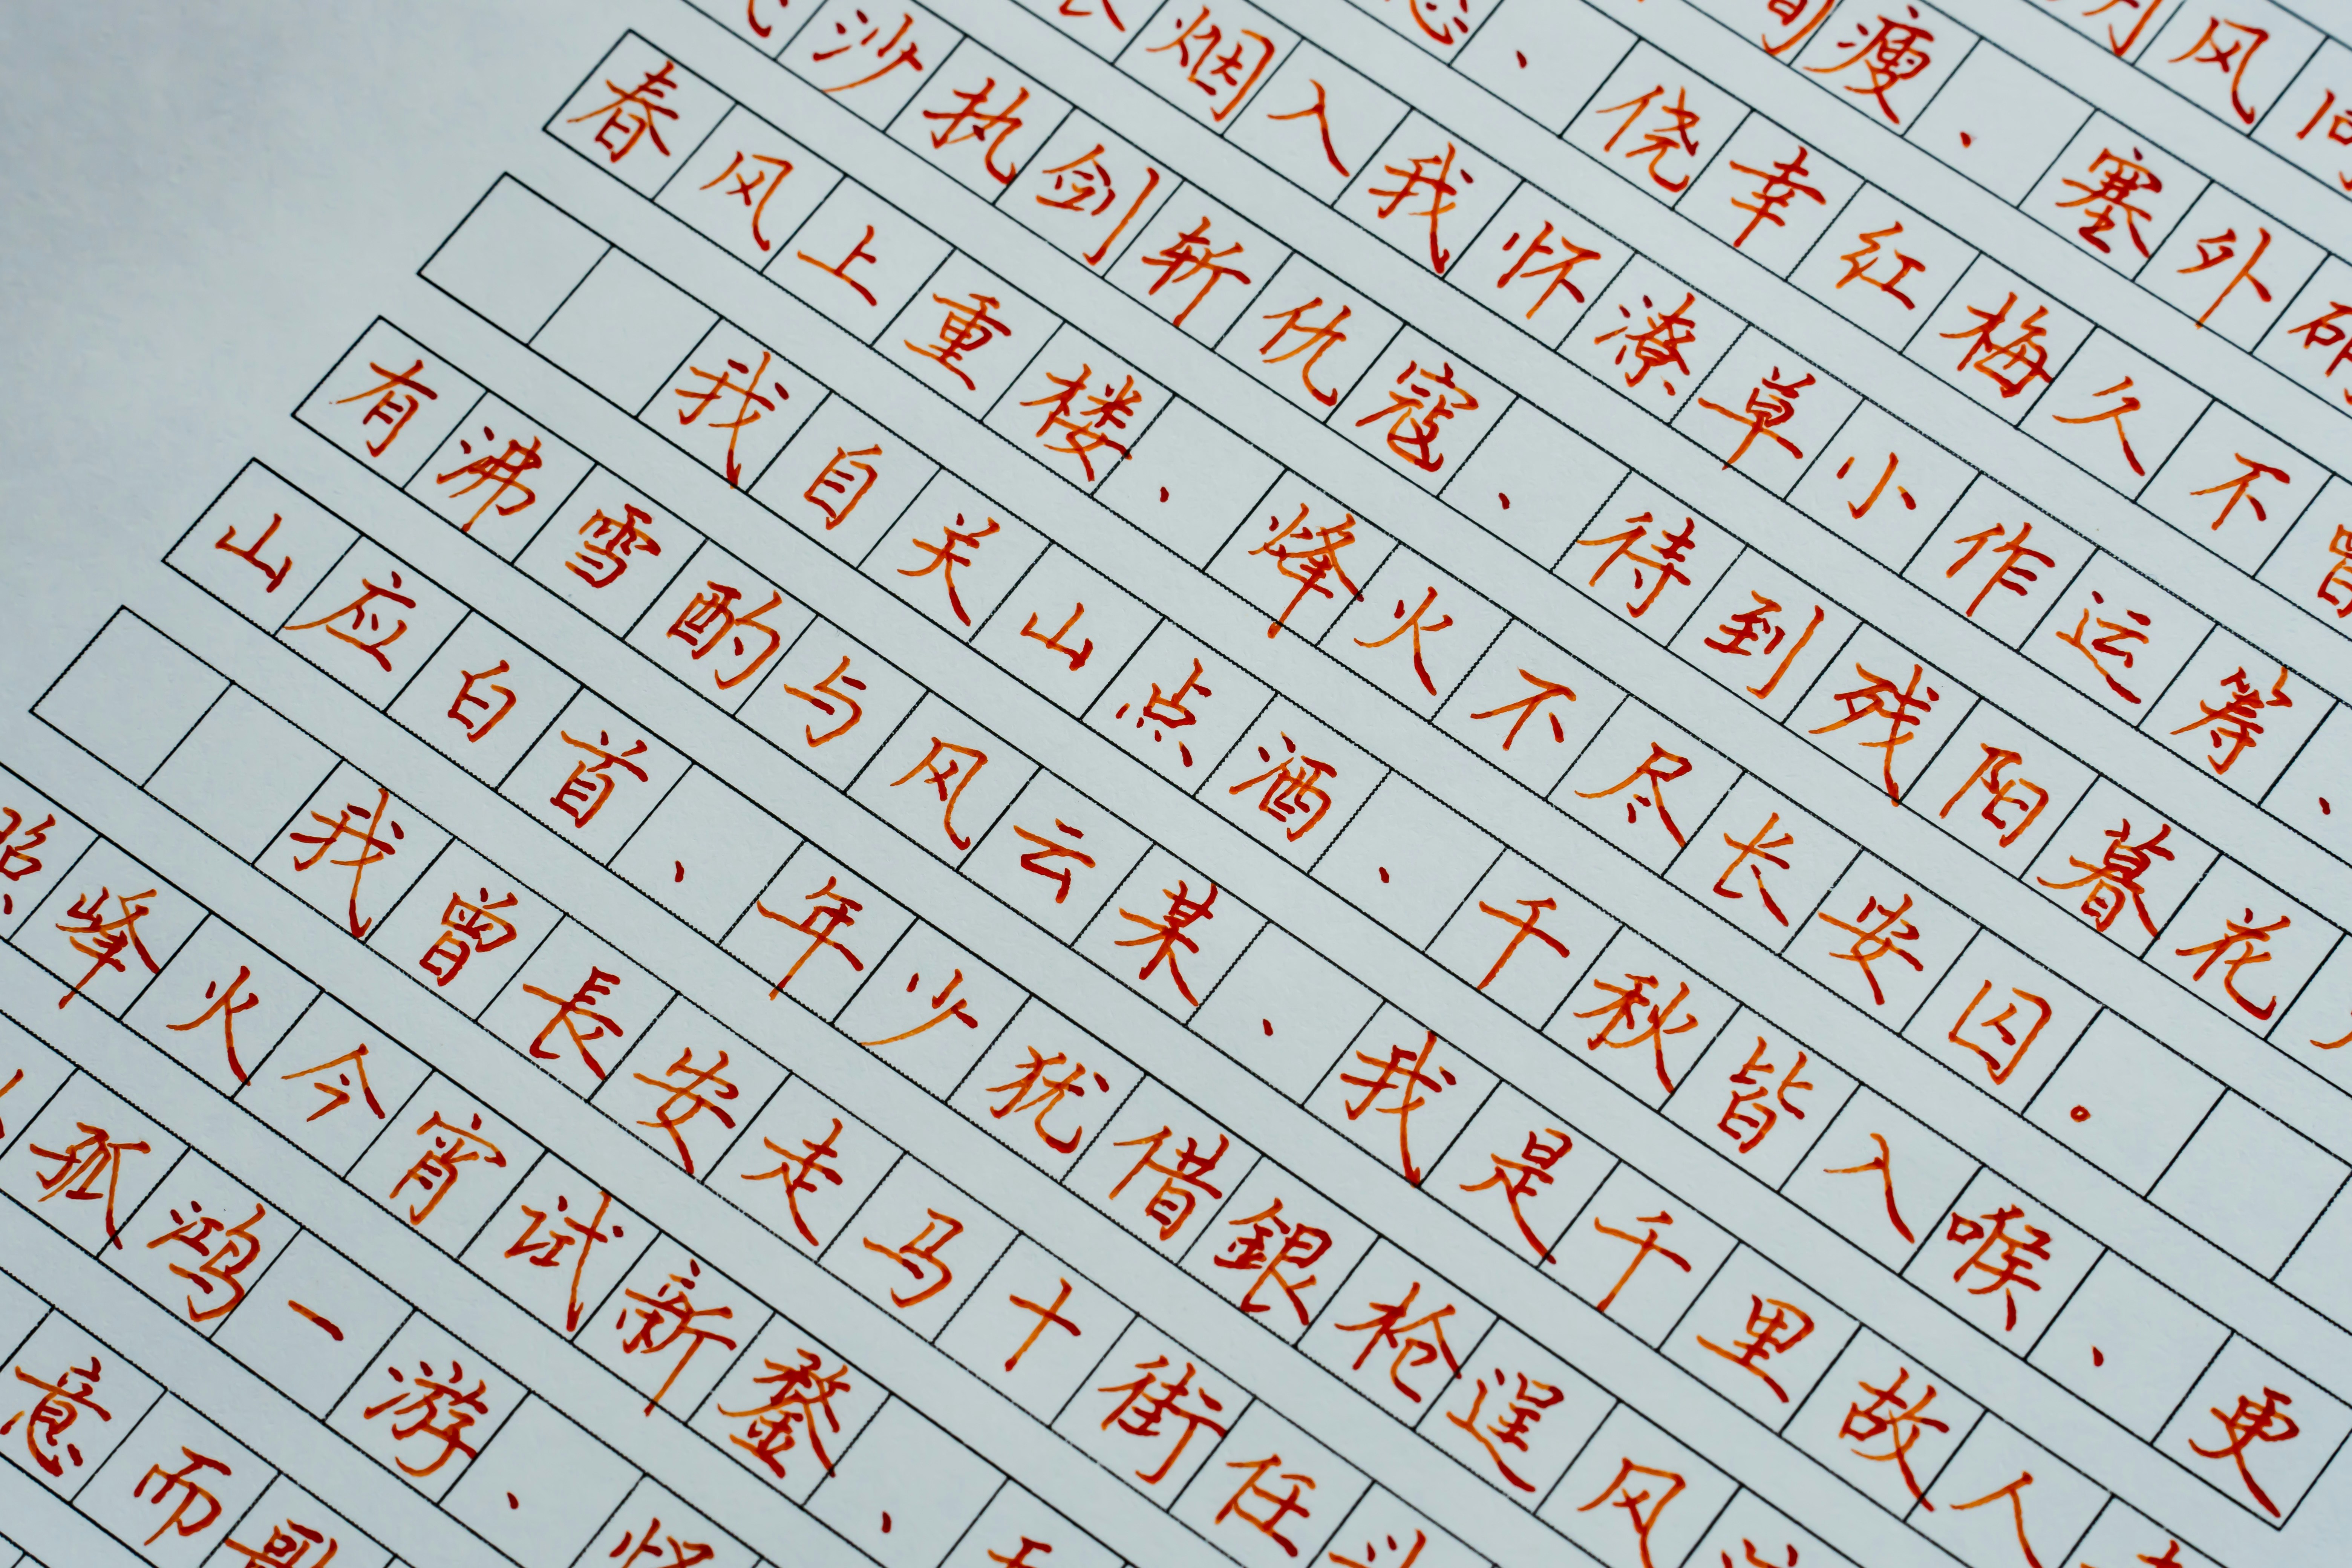 风
瘦、塞外
、侥幸红梅久不曾
烟入我怀潦草小作运筹、
沙执剑斩仇寇、待到残阳暮花
春风上重楼、烽火不尽长安囚。
我自关山点酒、千秋皆入喉、更
有沸雪酌与风云某、我是千里故人
山应白首、年少犹借銀枪逞风
我曾長安走马十街任
照峰火今宵试新鍪、
孤鸿一游、
意而